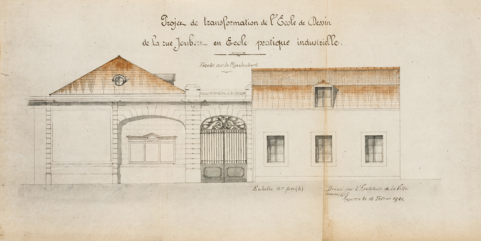 Projet de transformation de l'Ecole de Dessin
de la rue Joubert en Ecole pratique industrielle.
Façade sur la Rue Joubert
Echelle
Dressé par l'Architecte de la Ville
le 18 Février